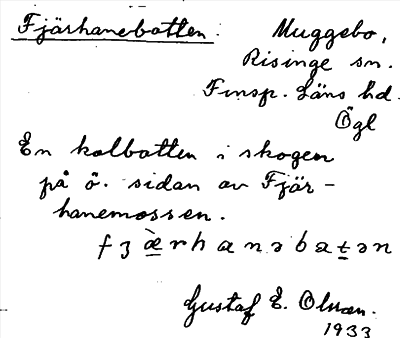 Fjärhanebotten:
Muggebo,
Risinge sn.
Finsp. Läns hd.
Ögl
En kolbotten i skogen
på ö. sidan av Fjär-
hanemossen.
fʒæ̀rhanəbat̠ən
Gustaf E. Olsson.
1933